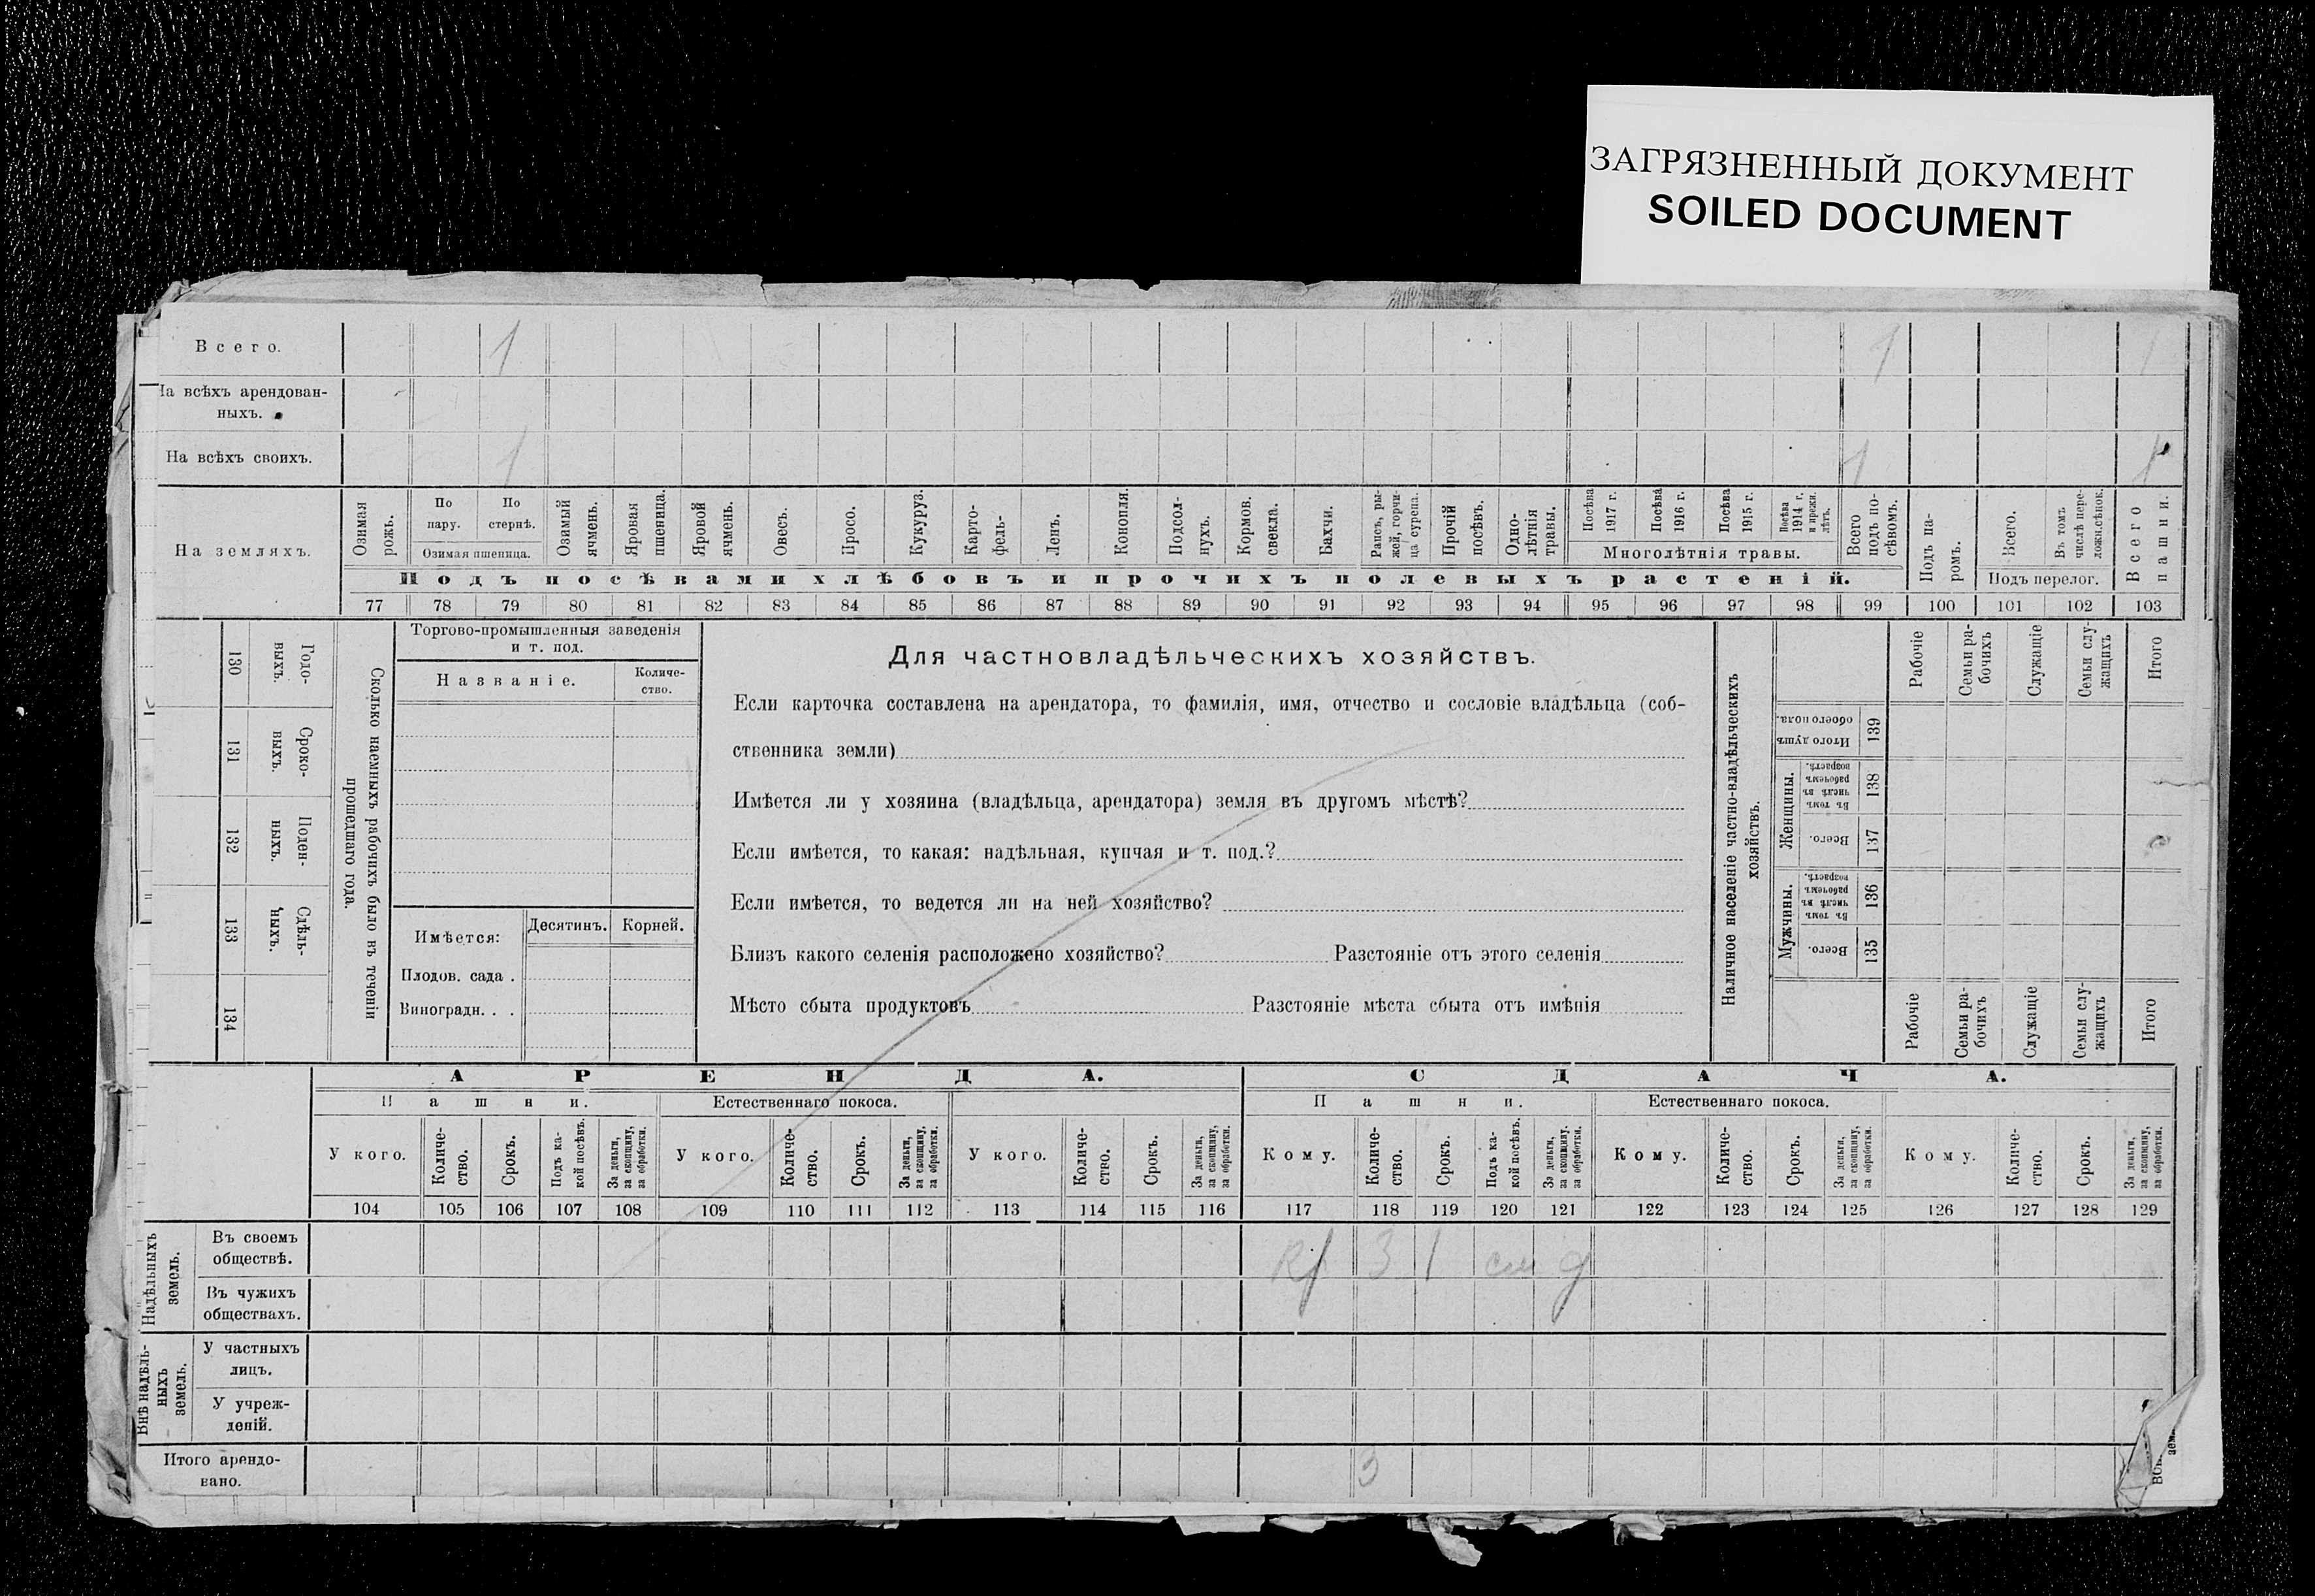 ЗАГРЯЗНЕННЫЙ ДОКУМЕНТ
SOILED DOCUMENT
Всего. 1 1 1
На всѣхъ арендован-
ныхъ.
На всѣхъ своихъ. 1 1 1
На земляхъ.
Озимая рожь.
По пару.
По стернѣ.
Озимая пшеница.
Озимый ячмень.
Яровая пшеница.
Яровой ячмень.
Овесъ.
Просо.
Кукуруз.
Карто-
фель-
Ленъ.
Конопля.
Подсол-
нухъ.
Кормов. свекла.
Бахчи.
Рапсъ, ры-
жей, горчи-
ца сурепа.
Прочій посѣвъ.
Одно-
лѣтнія травы.
Посѣва 1917 г.
Посѣва 1916 г.
Посѣва 1915 г.
Посѣва 1914 г. и прежн. лѣтъ.
Многолѣтнія травы.
Всего подъ по-
сѣвомъ.
Подъ па-
ромъ.
Всего.
Въ томъ числѣ пере-
ложн.сѣнок.
Подъ перелог.
Всего пашни.
Подъ посѣвами хлѣбовъ и прочихъ полевыхъ растеній.
77 78 79 80 81 82 83 84 85 86 87 88 89 90 91 92 93 94 95 96 97 98 99 100 101 102 103
130 Годо-
выхъ.
131 Сроко-
выхъ.
132 Поден-
ныхъ.
133 Сдѣль-
ныхъ.
134
Сколько наемныхъ рабочихъ было въ теченіи
прошедшаго года.
Торгово-промышленныя заведенія
и т. под.
Названіе.
Количе-
ство.
Имѣется:
Десятинъ. Корней.
Плодов. сада .
Виноградн. . .
Для частновладѣльческихъ хозяйствъ.
Если карточка составлена на арендатора, то фамилія, имя, отчество и сословіе владѣльца (соб-
ственника земли)
Имѣется ли у хозяина (владѣльца, арендатора) земля въ другомъ мѣстѣ?
Если имѣется, то какая: надѣльная, купчая и т. под.?
Если имѣется, то ведется ли на ней хозяйство?
Близъ какого селенія расположено хозяйство? Разстояніе отъ этого селенія
Мѣсто сбыта продуктовъ Разстояніе мѣста сбыта отъ имѣнія
Наличное населеніе частно-владѣльческихъ
хозяйствъ.
Рабочіе
Семьи ра-
бочихъ
Служащіе
Семьи слу-
жащихъ
Итого
Итого душъ обоего пола. 139
Женщины.
Въ томъ числѣ въ рабочемъ возрастѣ. 138
Всего. 137
Мужчины.
Въ томъ числѣ въ рабочемъ возрастѣ. 136
Всего. 135
Рабочіе
Семьи ра-
бочихъ
Служащіе
Семьи слу-
жащихъ
Итого
АРЕНДА. СДАЧА.
Пашни. Естественнаго покоса. Пашни. Естественнаго покоса.
У кого. Количе-
ство. Срокъ. Подъ ка-
кой посѣвъ. За деньги, за скопщину, за обработки.
У кого. Количе-
ство. Срокъ. За деньги, за скопщину, за обработки.
У кого. Количе-
ство. Срокъ. За деньги, за скопщину, за обработки.
Кому. Количе-
ство. Срокъ. Подъ ка-
кой посѣвъ. За деньги, за скопщину, за обработки.
Кому. Количе-
ство. Срокъ. За деньги, за скопщину, за обработки.
Кому. Количе-
ство. Срокъ. За деньги, за скопщину, за обработки.
104 105 106 107 108 109 110 111 112 113 114 115 116 117 118 119 120 121 122 123 124 125 126 127 128 129
Надѣльныхъ
земель.
Въ своемъ
обществѣ. 3 1
Въ чужихъ
обществахъ.
Внѣ надѣль-
ныхъ
земель.
У частныхъ
лицъ.
У учреж-
деній.
Итого арендо-
вано. 3